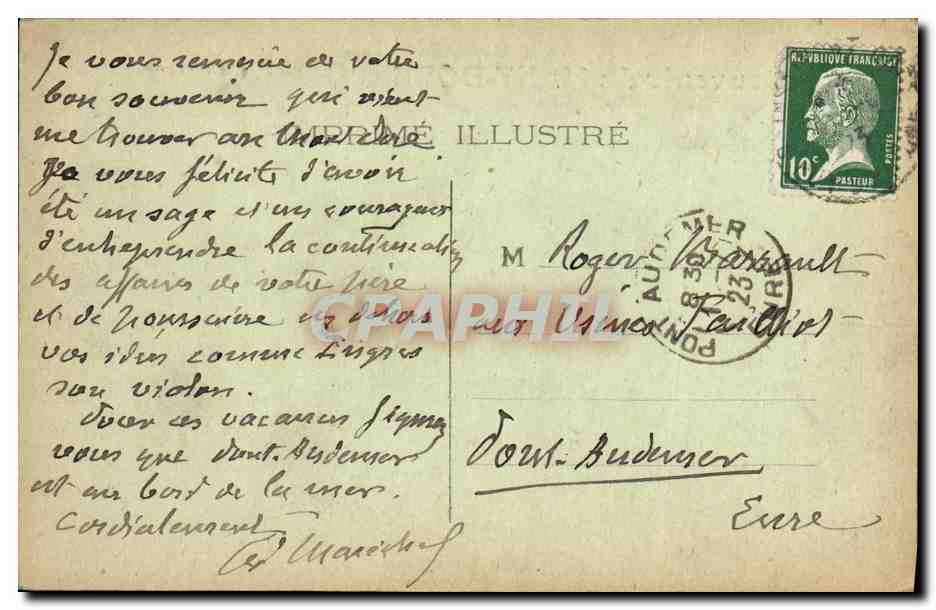 Je vous remercie de votre
bon souvenir qui vient
me trouver au
IMPRIMÉ ILLUSTRÉ
Je vous félicite d'avoir
été un sage et un courageux
d'entreprendre la continuation
des affaires de votre père
et de poursuivre en dehors
vos idées comme Ingres
son violon.
Pour ces vacances figurez
vous que Pont-Audemer
est au bord de la mer.
Cordialement
Maréchal
REPUBLIQUE FRANÇAISE
10c
POSTES
PASTEUR
PONT-AUDEMER
EURE
8 30
23
M Roger
aux Usines
Pont-Audemer
Eure
CPAPHIL